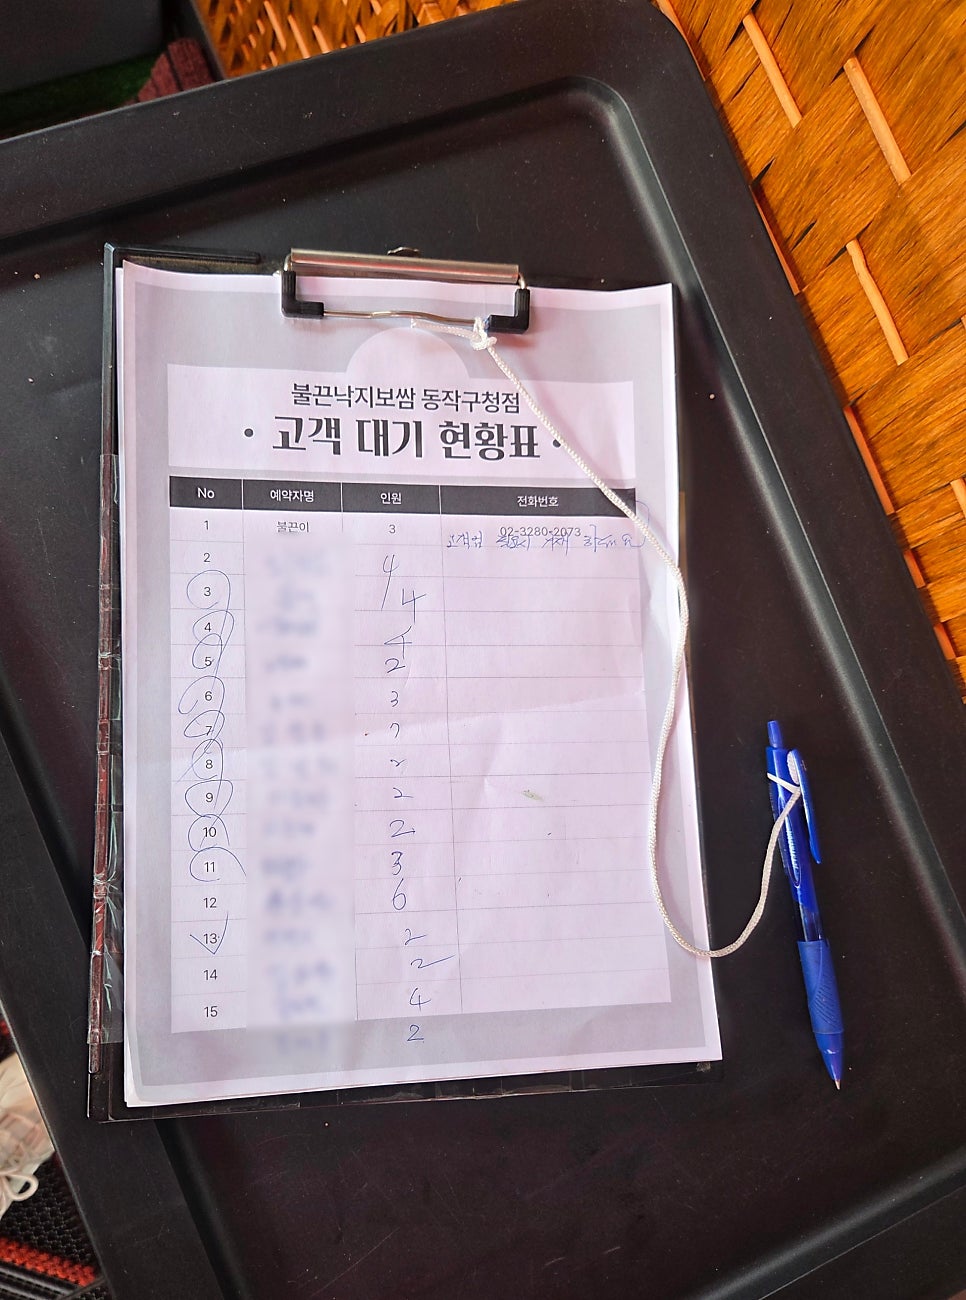 불끈낙지보쌈 동작구청점
• 고객 대기 현황표 •
No 예약자명 인원 전화번호
1 불끈이 3 02-3280-2073
고객님 필요시 기재 해주세요
2 4
3 4
4 4
5 2
6 3
7 7
8 2
9 2
10 2
11 3
12 6
13 2
14 2
15 4
2